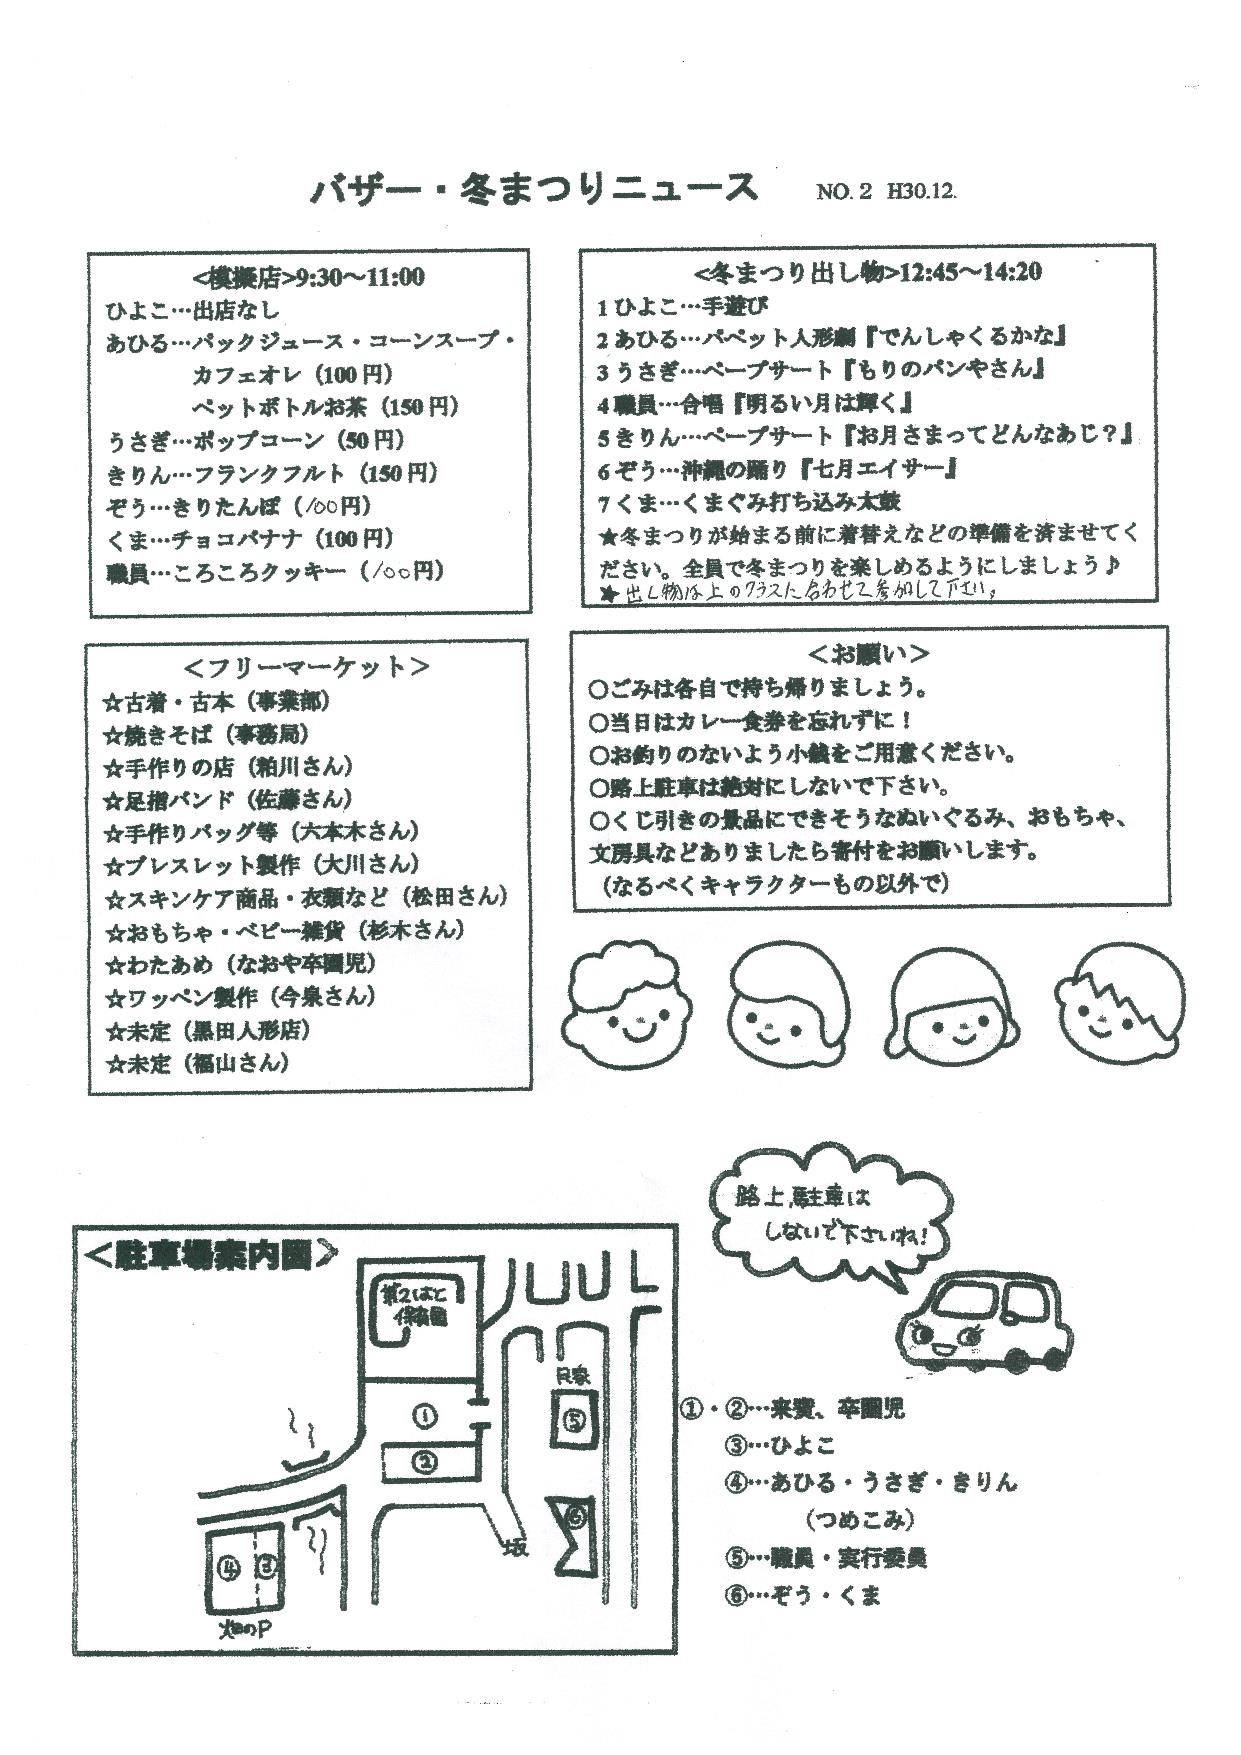 バザー・冬まつりニュース NO.2 H30.12.
<模擬店>9:30～11:00
ひよこ…出店なし
あひる…パックジュース・コーンスープ・
カフェオレ（100円）
ペットボトルお茶（150円）
うさぎ…ポップコーン（50円）
きりん…フランクフルト（150円）
ぞう…きりたんぽ（100円）
くま…チョコバナナ（100円）
職員…ころころクッキー（100円）
<冬まつり出し物>12:45～14:20
1 ひよこ…手遊び
2 あひる…パペット人形劇『でんしゃくるかな』
3 うさぎ…ペープサート『もりのパンやさん』
4 職員…合唱『明るい月は輝く』
5 きりん…ペープサート『お月さまってどんなあじ？』
6 ぞう…沖縄の踊り『七月エイサー』
7 くま…くまぐみ打ち込み太鼓
★冬まつりが始まる前に着替えなどの準備を済ませてく
ださい。全員で冬まつりを楽しめるようにしましょう♪
★出し物は上のクラスに合わせて参加して下さい。
＜フリーマーケット＞
☆古着・古本（事業部）
☆焼きそば（事務局）
☆手作りの店（粕川さん）
☆足指バンド（佐藤さん）
☆手作りバッグ等（六本木さん）
☆ブレスレット製作（大川さん）
☆スキンケア商品・衣類など（松田さん）
☆おもちゃ・ベビー雑貨（杉木さん）
☆わたあめ（なおや卒園児）
☆ワッペン製作（今泉さん）
☆未定（黒田人形店）
☆未定（福山さん）
＜お願い＞
○ごみは各自で持ち帰りましょう。
○当日はカレー食券を忘れずに！
○お釣りのないよう小銭をご用意ください。
○路上駐車は絶対にしないで下さい。
○くじ引きの景品にできそうなぬいぐるみ、おもちゃ、
文房具などありましたら寄付をお願いします。
（なるべくキャラクターもの以外で）
路上駐車は
しないで下さいね！
＜駐車場案内図＞
第2はと
保育園
民家
①
⑤
②
⑥
坂
④
③
畑のP
①・②…来賓、卒園児
③…ひよこ
④…あひる・うさぎ・きりん
（つめこみ）
⑤…職員・実行委員
⑥…ぞう・くま